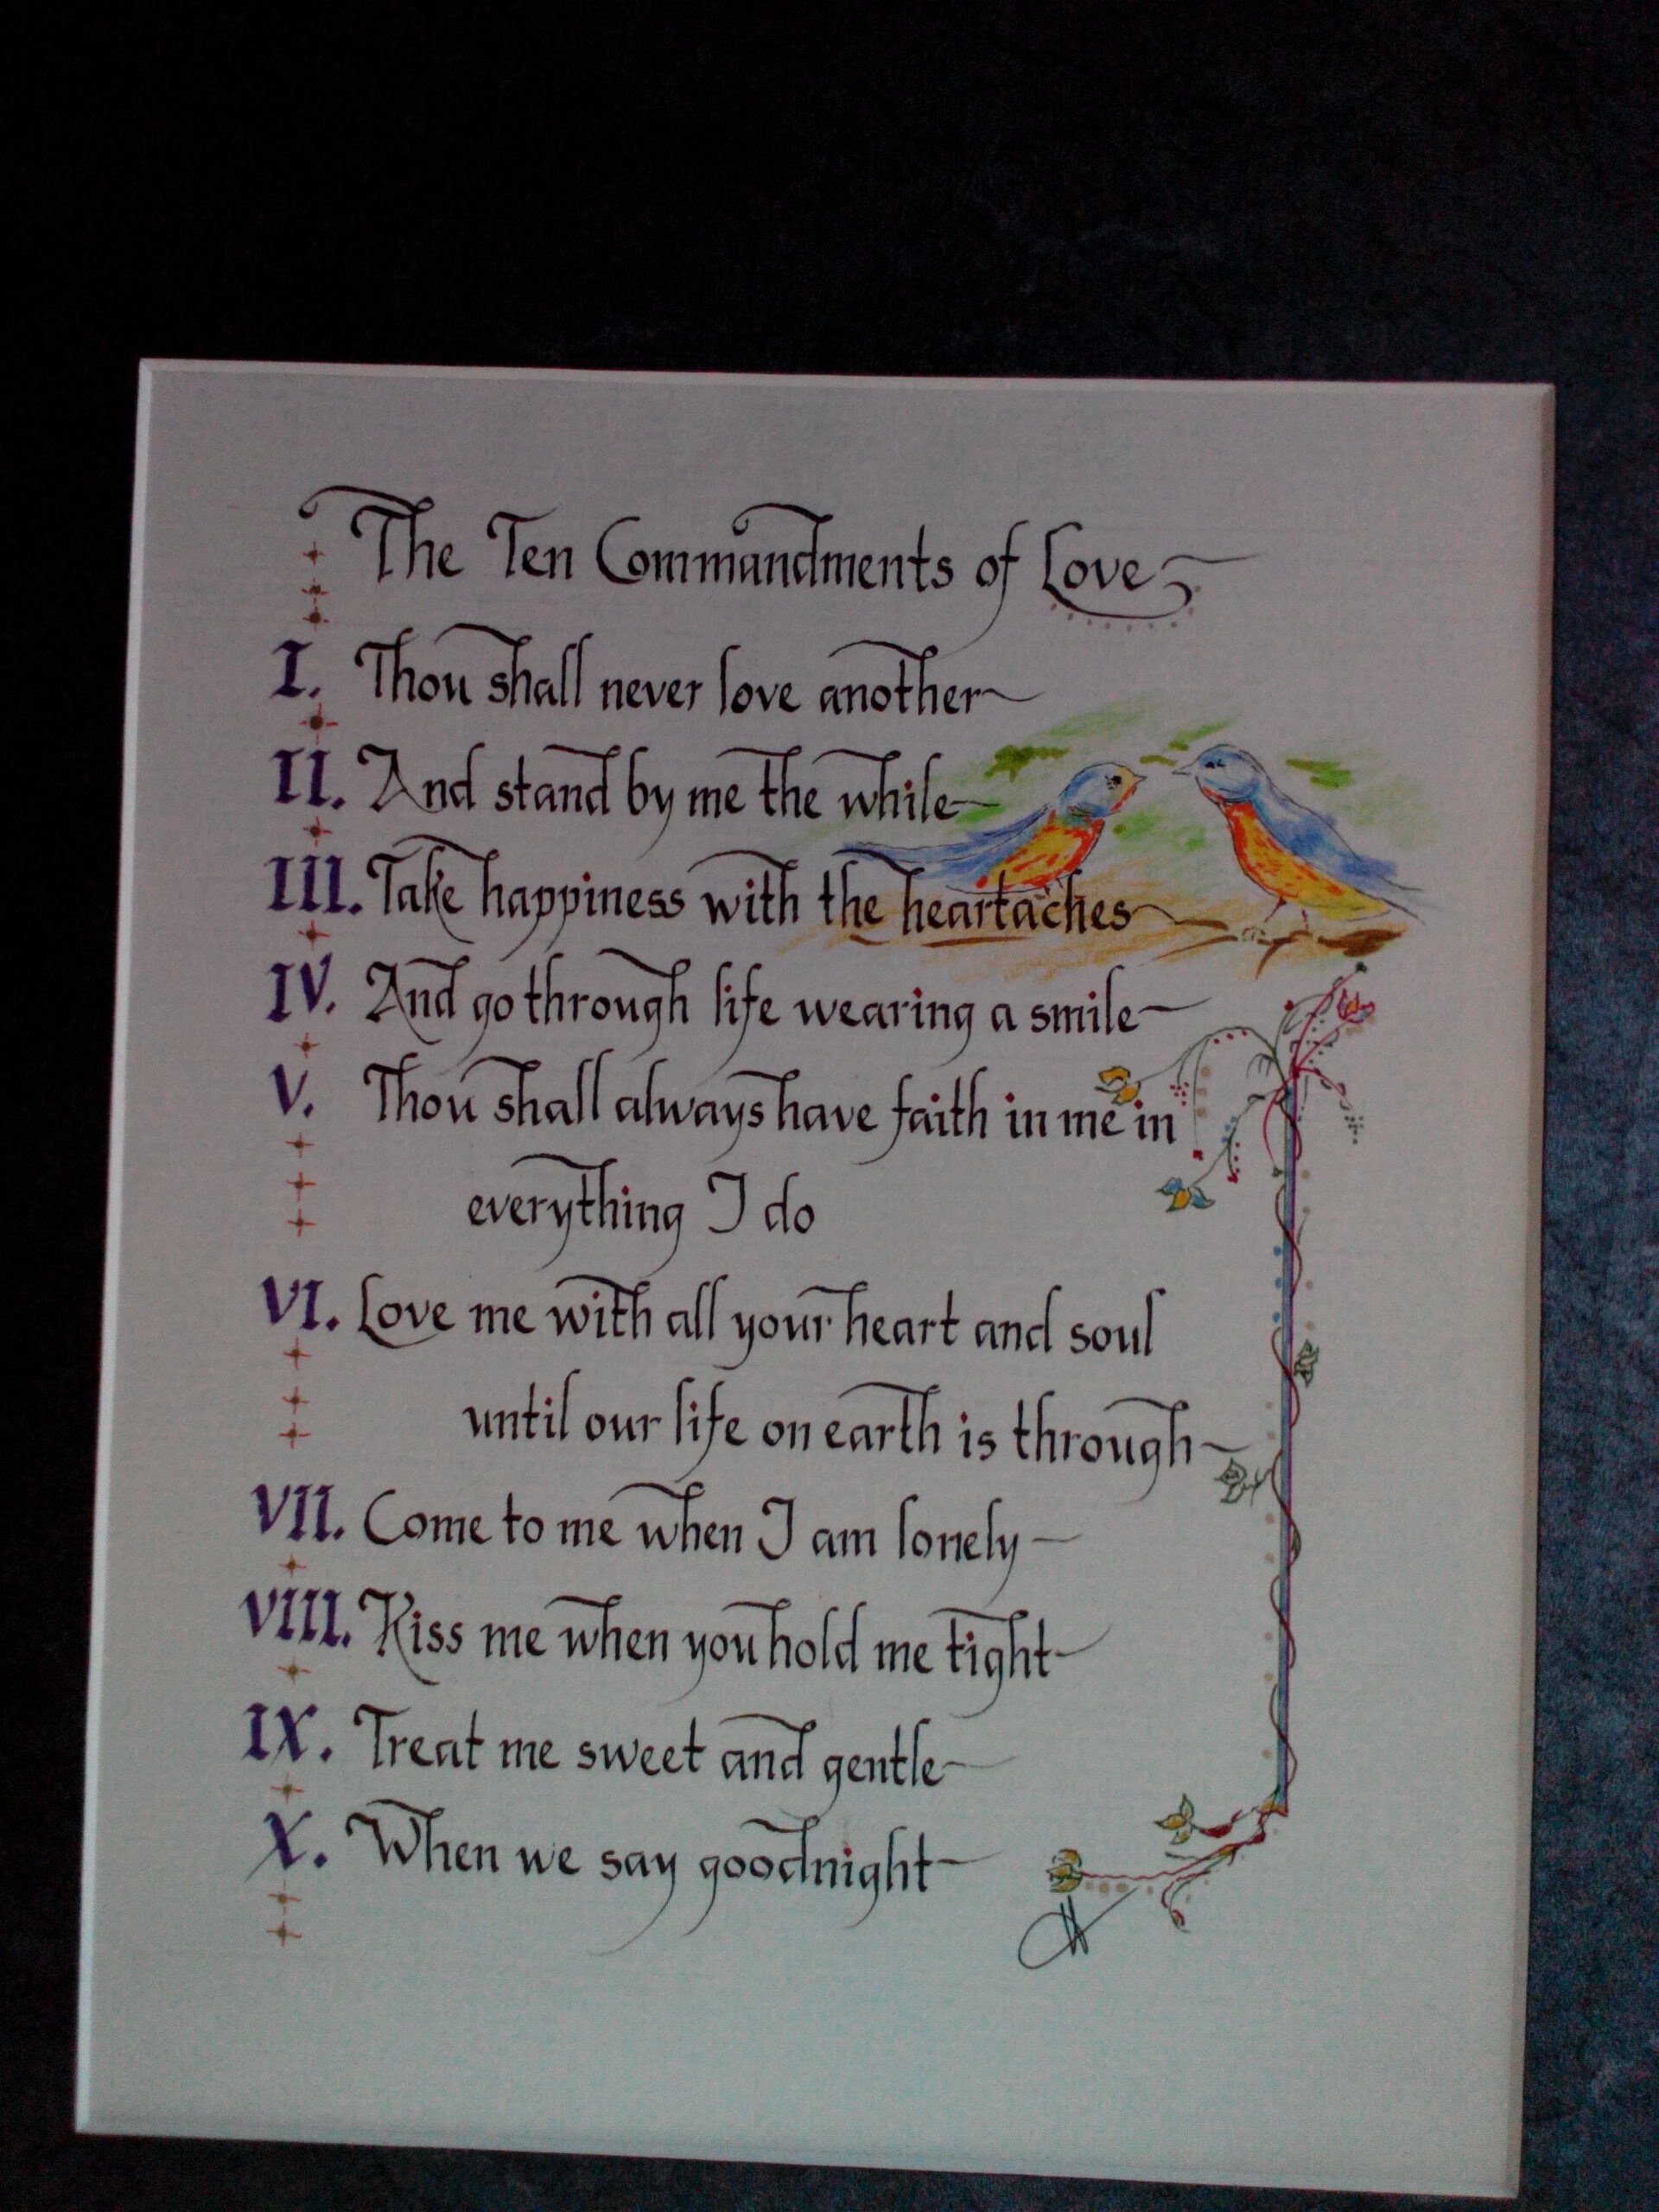 The Ten Commandments of Love
I. Thou shall never love another
II. And stand by me the while
III. Take happiness with the heartaches
IV. And go through life wearing a smile
V. Thou shall always have faith in me in
everything I do
VI. Love me with all your heart and soul
until our life on earth is through
VII. Come to me when I am lonely
VIII. Kiss me when you hold me tight
IX. Treat me sweet and gentle
X. When we say goodnight